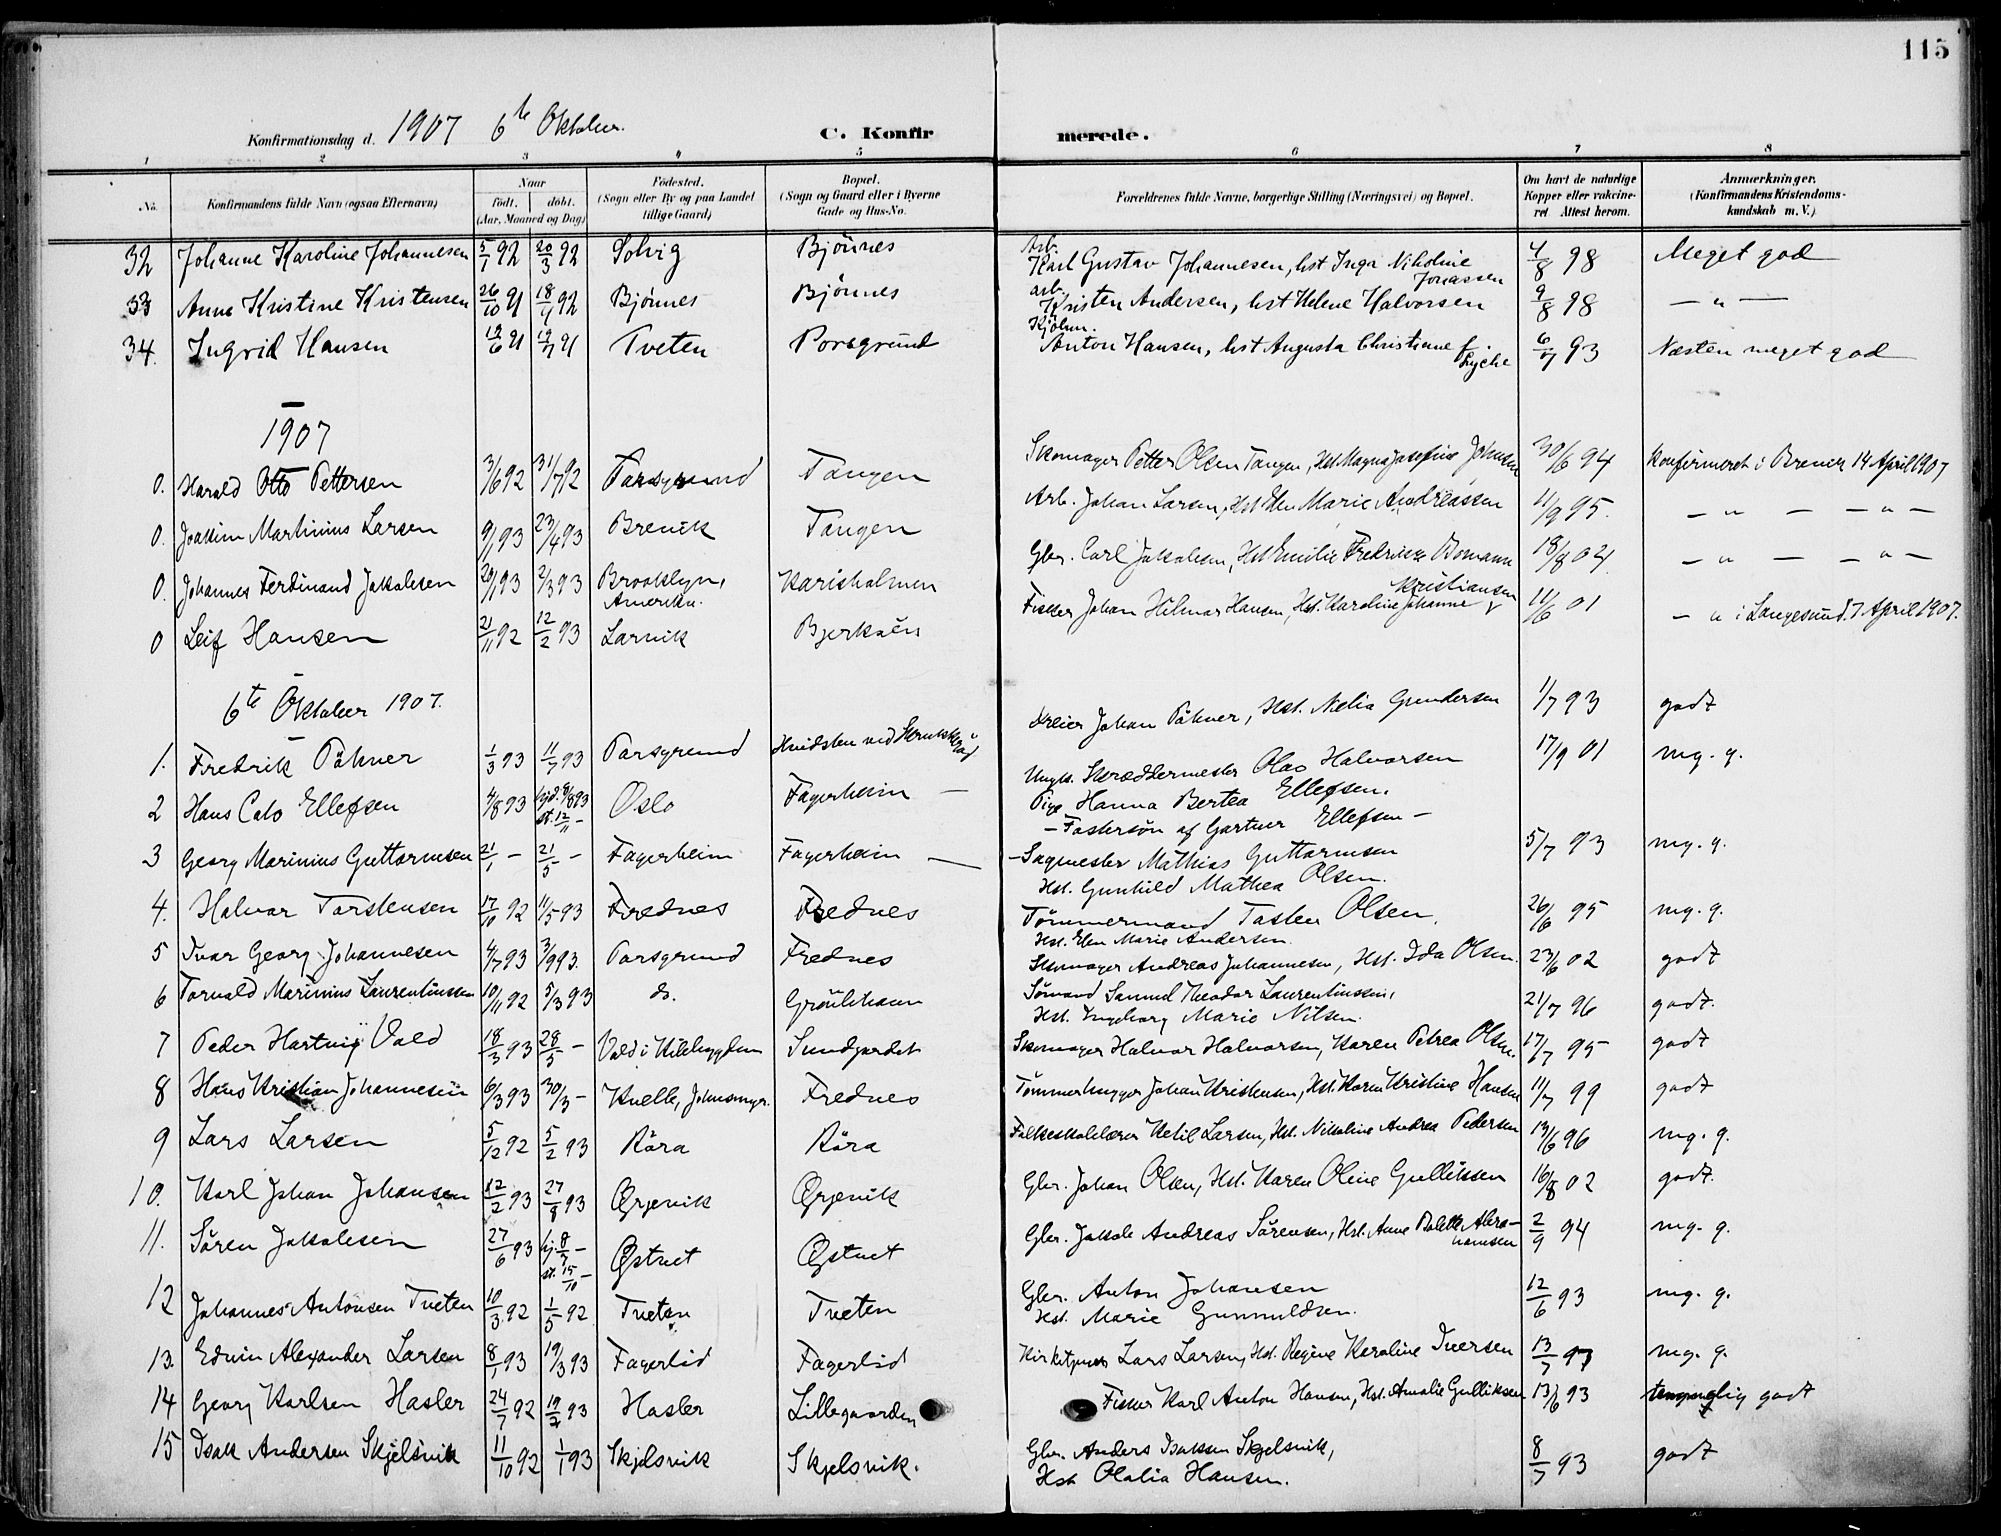 115
Konfirmationsdag d. 1907 6te Oktober. C. Konfirmerede.
1 2 3 4 5 6 7 8
No. Konfirmandens fulde Navn (ogsaa Efternavn) Naar født. døbt. (Aar, Maaned og Dag) Fødested. (Sogn eller By og paa Landet tillige Gaard) Bopæl. (Sogn og Gaard eller i Byerne Gade og Hus-No. Forældrenes fulde Navne, borgerlige Stilling (Næringsvei) og Bopæl. Om havt de naturlige Kopper eller vakcineret. Attest herom. Anmærkninger. (Konfirmandens Kristendomskundskab m. V.)
32 Johanne Karoline Johannesen 5/1 92 20/3 92 Solvig Bjönnes Arb. Karl Gustav Johannesen, hst Inga Nikoline Jonassen 4/8 98 Meget god
33 Anna Kristine Kristensen 26/10 91 18/4 92 Bjönnes Bjönnes Arb. Kristen Andersen, hst Helene Halvorsen 9/8 98 — " —
34. Ingrid Hansen 19/6 91 19/7 91 Tveten Porsgrund Kjöbm. Anton Hansen, hst Augusta Christiane f. Lyche 6/7 93 Næsten meget god
1907
0. Harald Otto Pettersen 3/6 92 31/7 92 Porsgrund Tangen Skomager Petter Olsen Tangen, Hst Magna Josefine Johnsen 30/6 94 Konfirmeret i Brevik 14 April 1907
0. Joakim Martinius Larsen 9/1 93 23/4 93 Brevik Tangen Arb. Johan Larsen, Hst Elen Marie Andreassen 11/9 95. — " — — " —
0. Johannes Ferdinand Jakobsen 29/1 93 2/3 93 Brooklyn, Amerika. Karisholmen Gbr. Carl Jakobsen, Hst Emilie Fredrikke Bomann 18/8 02 — " — — " —
0 Leif Hansen 21/11 92 12/2 93 Larvik Bjerkøen Fisker Johan Hilmar Hansen, Hst. Karoline Johanne Kristiansen 11/6 01 — " i Langesund. 7 April 1907.
6te Oktober 1907.
1. Fredrik Påhner 1/3 93 11/7 93 Porsgrund Hvidsten ved Dreier Johan Påhner, Hst. Nielia Gundersen 1/7 93 godt
2 Hans Cato Ellefsen 4/8 93 hjd. 8/8 93 st. 12/11 — Oslo Fagerheim — Ungk. Skræddermester Olav Halvorsen Pige Hanna Bertea Ellefsen. — Fostersön af Gartner Ellefsen — 17/9 01 mg. g.
3 Georg Marinius Guttormsen 21/1 — 21/5 — Fagerheim Fagerheim — — Sagmester Mathias Guttormsen Hst. Gunhild Mathea Olsen. 5/7 93 mg. g.
4. Halvor Torstensen 17/10 92 11/5 93 Frednes Frednes Tömmermand Tosten Olsen, Hst. Elen Marie Andersen. 26/6 95 mg. g.
5 Ivar Georg Johannesen 4/7 93 3/9 93. Porsgrund Frednes Skomager Andreas Johannesen, Hst. Ida Olsen. 23/6 02 godt
6 Torvald Marinius Laurentiussen 10/11 92 5/3 93 do. Grönlihaven Sömand Samuel Theodor Laurentiussen, Hst. Ingeborg Marie Nilsen. 21/7 96 godt.
7 Peder Hartvig Vold 18/3 93 28/5 — Vold i Kilebygden Sundjordet Skomager Halvor Halvorsen, Karen Petrea Olsen. 17/7 95 godt
8 Hans Kristian Johannesen 6/3 93 30/3 — Knelle, Johnsmyr. Frednes Tömmerhugger Johan Kristensen, Hst. Karen Kristine Hansen 11/7 99 godt
9 Lars Larsen 5/12 92 5/2 93 Röra Röra Folkeskolelærer Ketil Larsen, Hst. Nikoline Andrea Pedersen 13/6 96 mg. g.
10. Karl Johan Johansen 12/2 93 27/8 93 Ørjevik Ørjevik Gbr. Johan Olsen, Hst. Karen Oline Gulliksen 16/8 02 godt.
11. Sören Jakobsen 27/6 93 hj. 8/7 — st. 15/10 — Østvet Østvet Gbr. Jakob Andreas Sörensen, Hst. Anne Bolette Abrahamsen 2/9 94 mg. g.
12 Johannes Antonsen Tveten 10/3 92 1/5 92 Tveten Tveten Gbr. Anton Johansen Hst. Marie Gunnuldsen. 12/6 93 mg. g.
13. Edvin Alexander Larsen 8/1 93 19/3 93 Fagerlid Fagerlid Lars Larsen, Hst. Regine Karoline Iversen 13/7 97 mg. g.
14 Georg Karlsen Hasler 24/7 92 19/2 93 Hasler Lillegaarden Fisker Karl Anton Hansen, Hst. Amalie Gulliksen 13/6 93 temmelig godt
15 Isak Andersen Skjelsvik 11/10 92 1/1 93 Skjelsvik Skjelsvik. Gbr. Anders Isaksen Skjelsvik, Hst Olalia Hansen. 8/7 93 godt